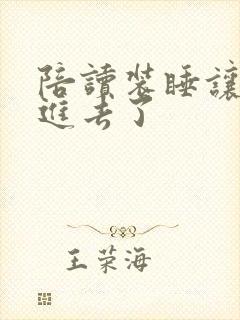 陪讀裝睡讓
進去了
王荣海